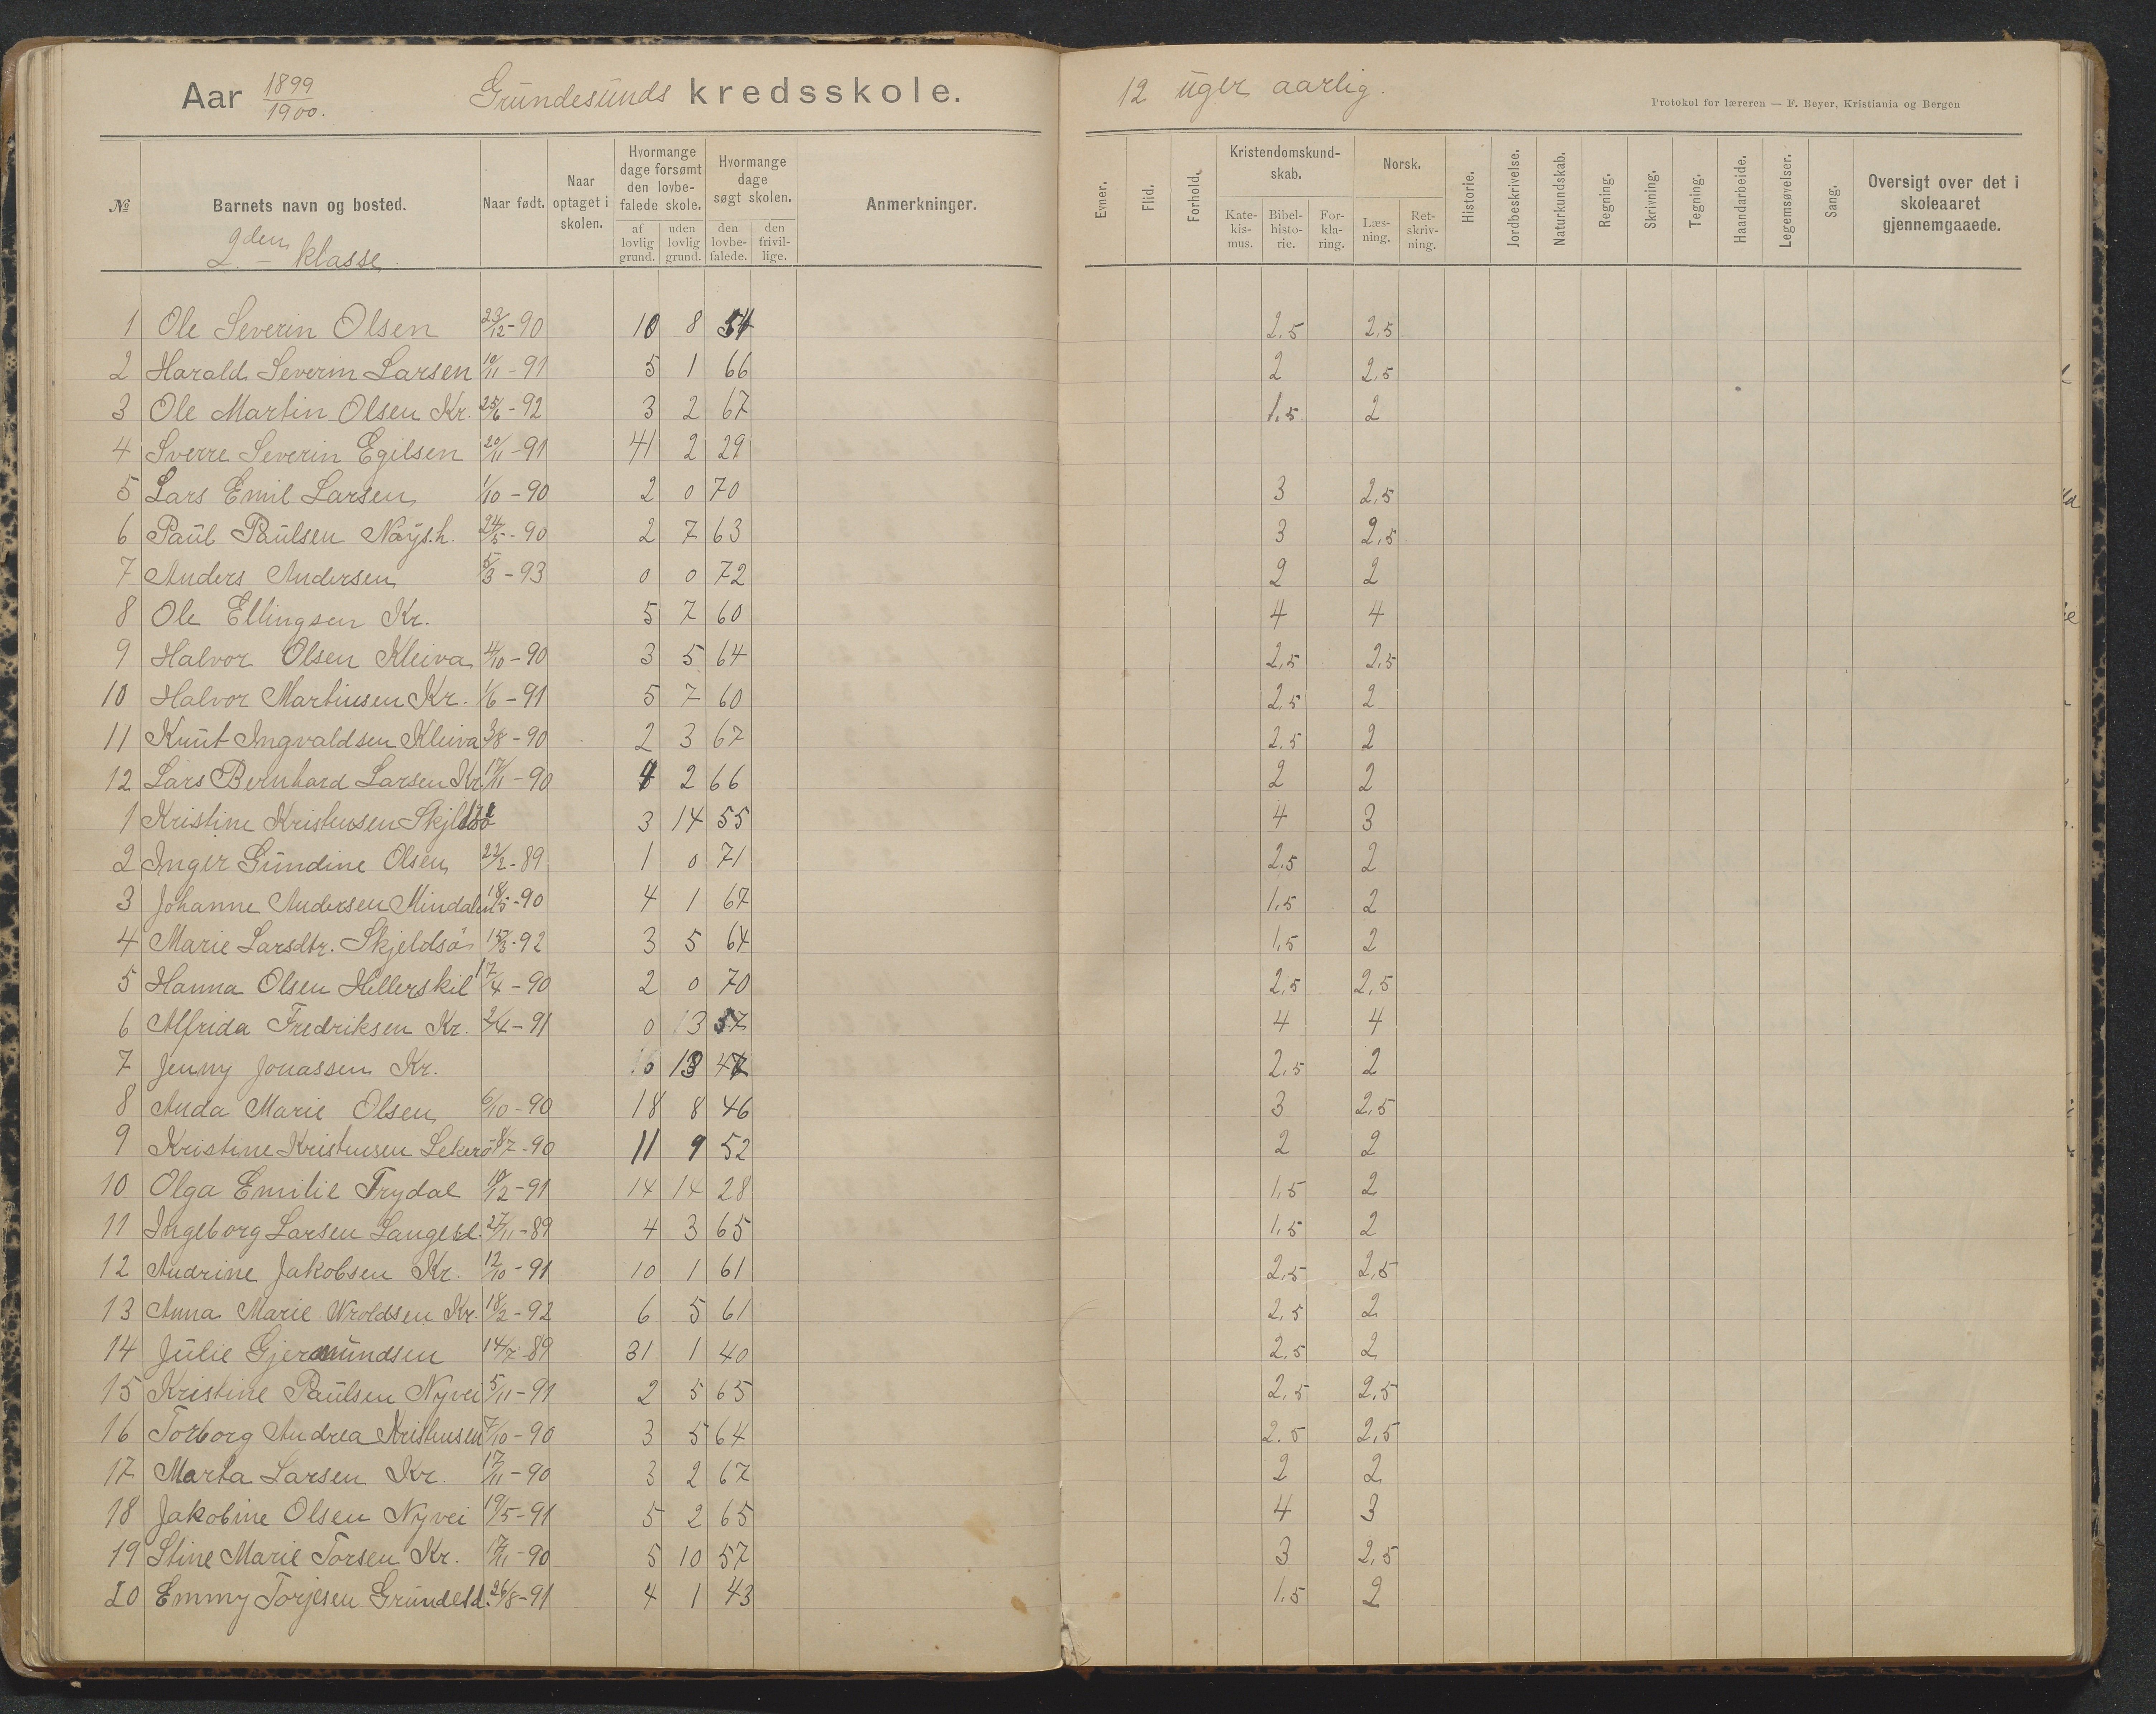 Aar 1899/1900. Grundesunds kredsskole. 12 uger aarlig.
Protokol for læreren — F. Beyer, Kristiania og Bergen
№ Barnets navn og bosted. Naar født. Naar optaget i skolen. Hvormange dage forsømt den lovbefalede skole. af lovlig grund. uden lovlig grund. Hvormange dage søgt skolen. den lovbefalede. den frivillige. Anmerkninger. Evner. Flid. Forhold. Kristendomskundskab. Katekismus. Bibelhistorie. Forklaring. Norsk. Læsning. Retskrivning. Historie. Jordbeskrivelse. Naturkundskab. Regning. Skrivning. Tegning. Haandarbeide. Legemsøvelser. Sang. Oversigt over det i skoleaaret gjennemgaaede.
2den klasse
1 Ole Severin Olsen 23/12-90 10 8 54 2.5 2,5
2 Harald Severin Larsen 10/11-91 5 1 66 2 2,5
3 Ole Martin Olsen Kr. 25/6-92 3 2 67 1.5 2
4 Sverre Severin Egilsen 20/11-91 41 2 29
5 Lars Emil Larsen 1/10-90 2 0 70 3 2,5
6 Paul Paulsen 24/5-90 2 7 63 3 2,5
7 Anders Andersen 5/3-93 0 0 72 2 2
8 Ole Ellingsen Kr. 5 7 60 4 4
9 Halvor Olsen Kleiva 4/10-90 3 5 64 2,5 2,5
10 Halvor Martinsen Kr. 1/6-91 5 7 60 2.5 2
11 Knut Ingvaldsen Kleiva 3/8-90 2 3 67 2.5 2
12 Lars Bernhard Larsen Kr. 17/11-90 4 2 66 2 2
1 Kristine Kristensen 3 14 55 4 3
2 Inger Gundine Olsen 22/2-89 1 0 71 2.5 2
3 Johanne Andersen Mindalen 18/5-90 4 1 67 1,5 2
4 Marie Larsdtr. Skjeldsö 15/3-92 3 5 64 1,5 2
5 Hanna Olsen Hellerskil 17/4-90 2 0 70 2,5 2,5
6 Alfrida Fredriksen Kr. 2/4-91 0 13 57 4 4
7 Jenny Jonassen Kr. 2,5 2
8 Anda Marie Olsen 6/10-90 18 8 46 3 2,5
9 Kristine Kristensen Lekerö 8/7-90 11 9 52 2 2
10 Olga Emilie Frydal 10/12-91 14 14 28 1,5 2
11 Ingeborg Larsen Langesd. 27/11-89 4 3 65 1,5 2
12 Andrine Jakobsen Kr. 12/10-91 10 1 61 2,5 2,5
13 Anna Marie Wroldsen Kr. 18/2-92 6 5 61 2,5 2
14 Julie Gjermundsen 14/7-89 31 1 40 2.5 2
15 Kristine Paulsen Nyvei 5/11-91 2 5 65 2,5 2,5
16 Torborg Andrea Kristensen 7/10-90 3 5 64 2.5 2,5
17 Marta Larsen Kr. 17/11-90 3 2 67 2 2
18 Jakobine Olsen Nyvei 19/5-91 5 2 65 4 3
19 Stine Marie Torsen Kr. 17/11-90 5 10 57 3 2,5
20 Emmy Torjesen Grundesd. 26/8-91 4 1 43 1.5 2